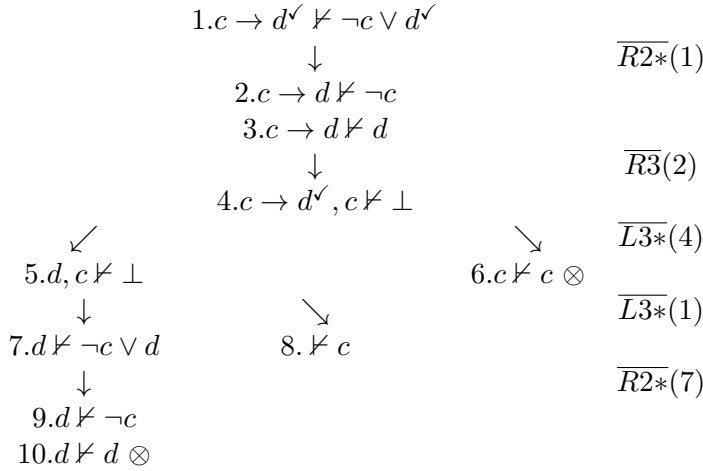 1.c → d✓ ⊬ ¬c ∨ d✓
↓ \overline{R2∗}(1)
2.c → d ⊬ ¬c
3.c → d ⊬ d
↓ \overline{R3}(2)
4.c → d✓, c ⊬ ⊥
↙ ↘ \overline{L3∗}(4)
5.d, c ⊬ ⊥ 6.c ⊬ c ⊗
↓ ↘ \overline{L3∗}(1)
7.d ⊬ ¬c ∨ d 8. ⊬ c
↓ \overline{R2∗}(7)
9.d ⊬ ¬c
10.d ⊬ d ⊗